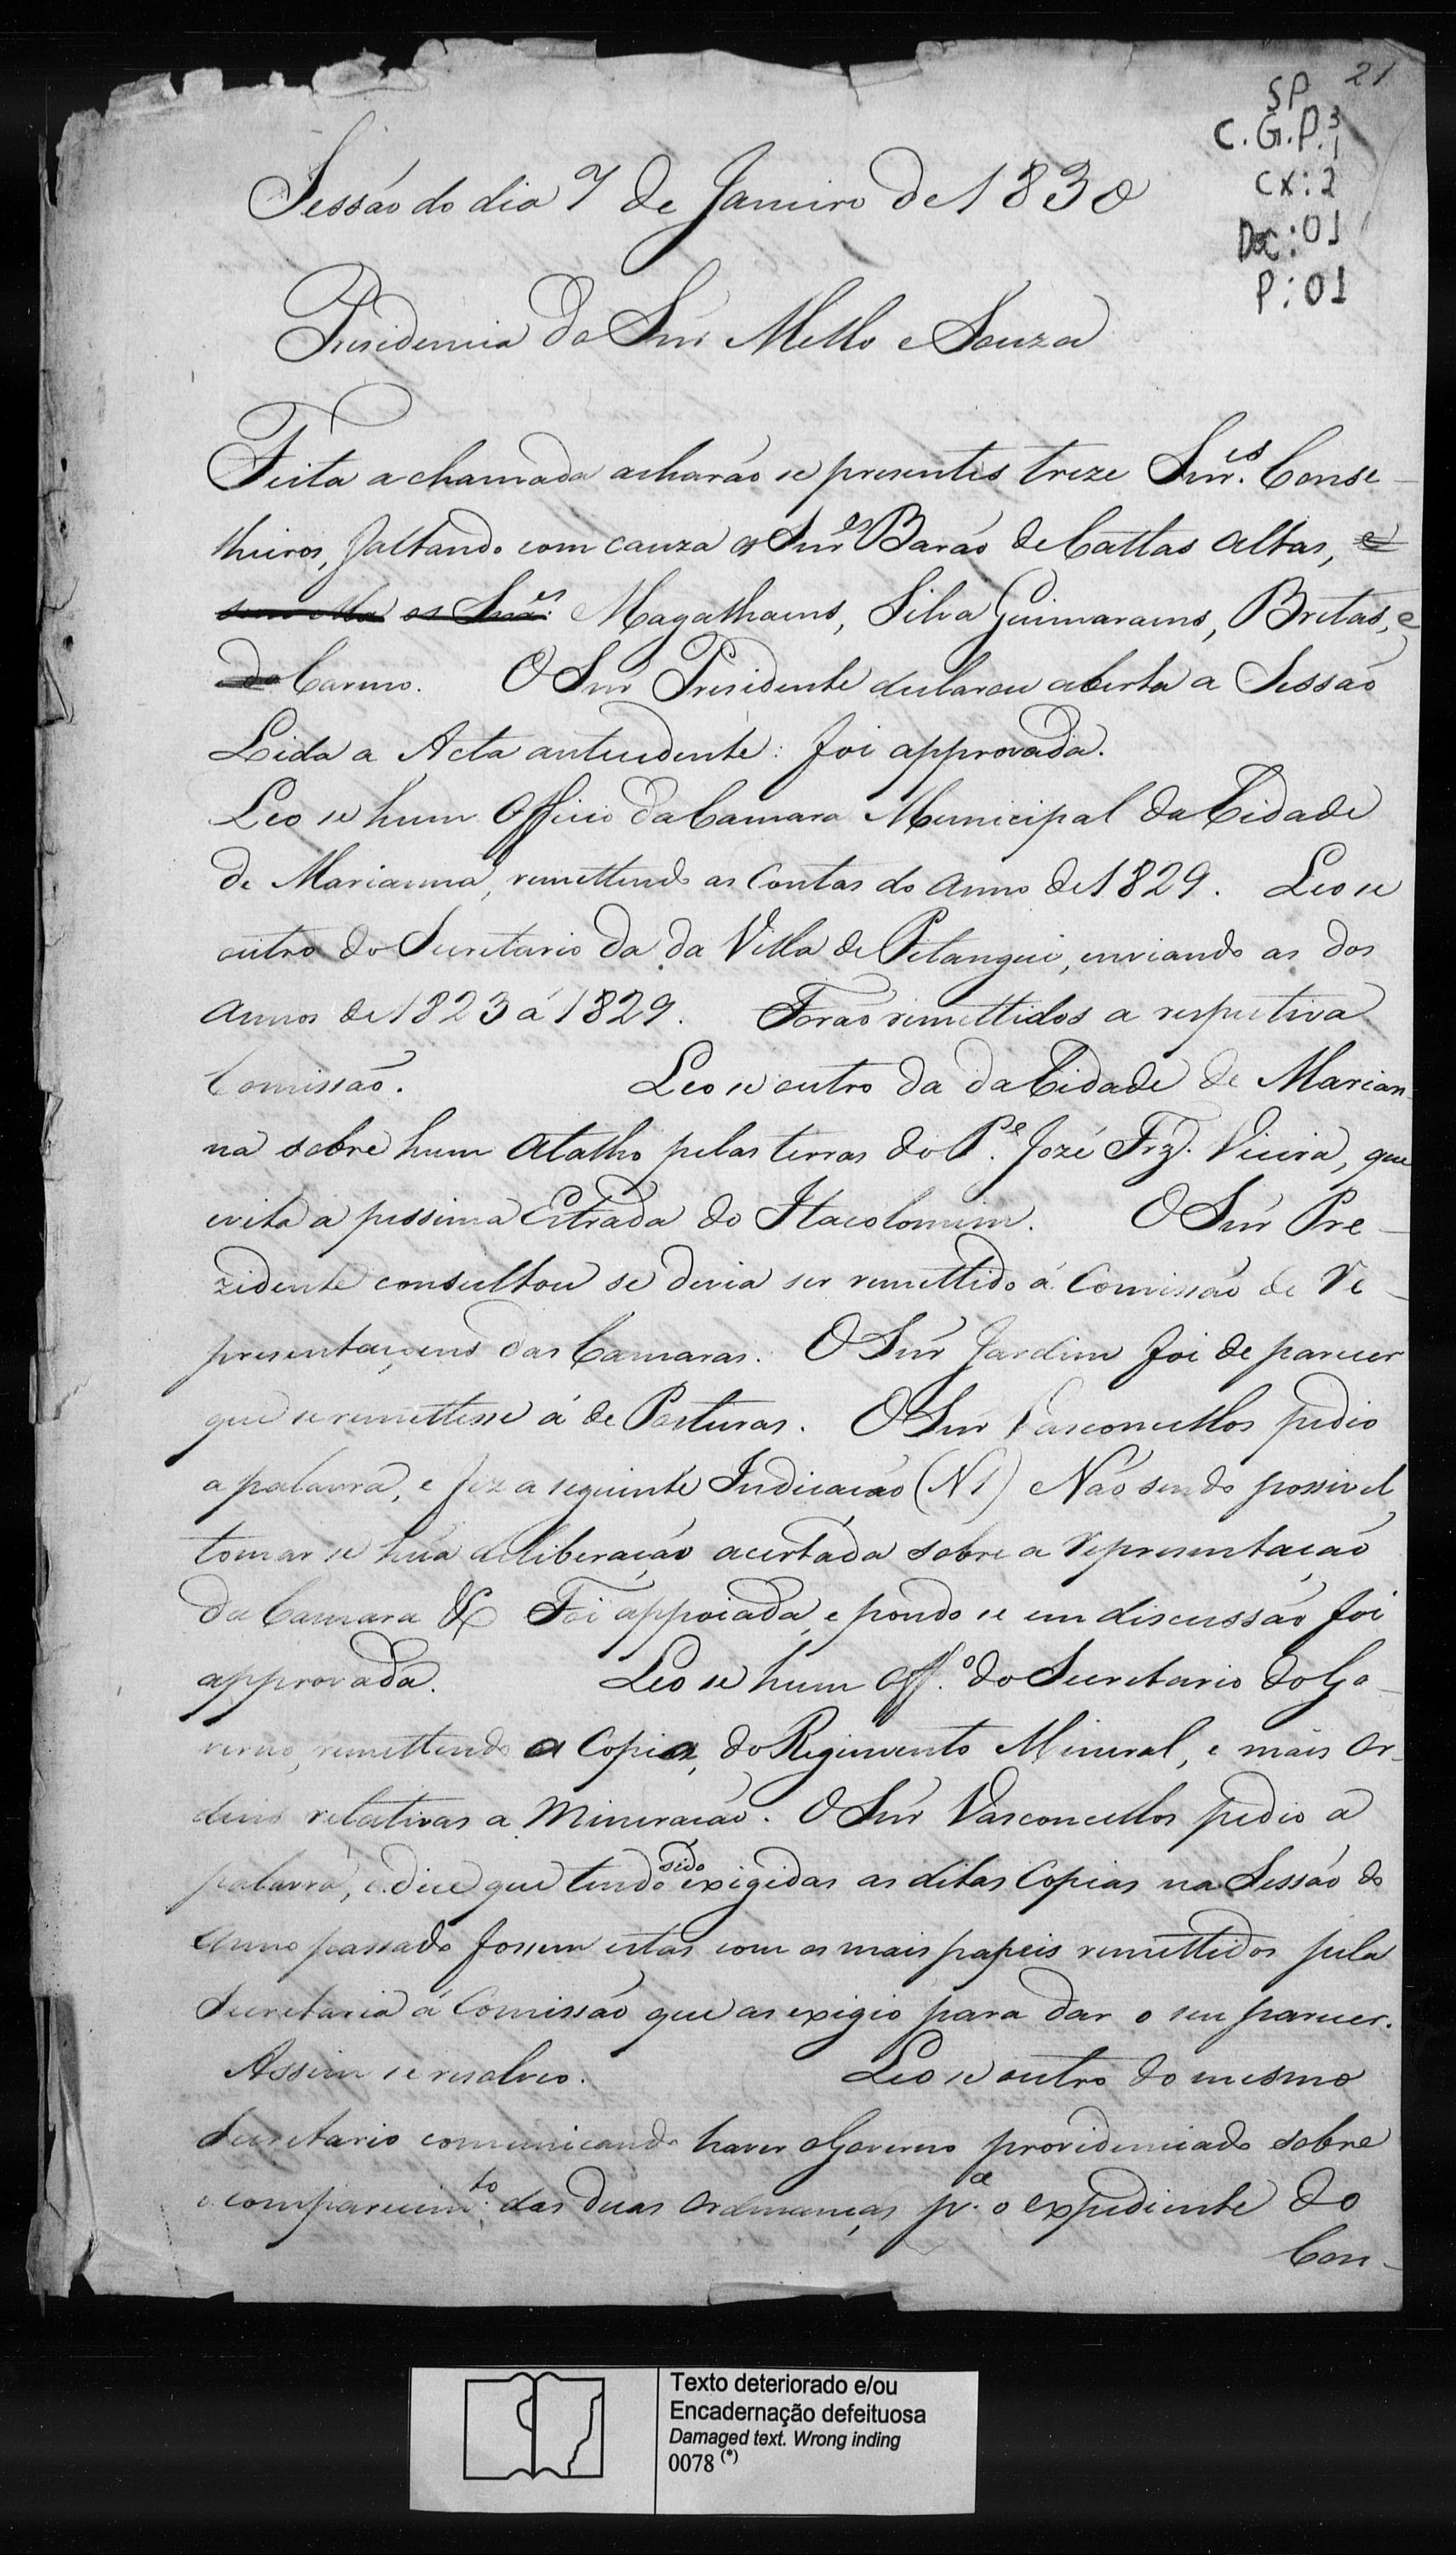 21
SP
C.G.P. 3
1
CX: 2
Doc: 01
P: 01
Sessão do dia 7 de Janeiro de 1830
Presidencia do Snr Mello e Souza
Feita a chamada acharão se presentes treze Snr.es Conse-
lheiros, faltando com cauza os Snr.es Barão de Cattas altas, e
os Snr.es Magalhaens, Silva Guimaraens, Bretas, e
do Carmo. O Snr Presidente declarou aberta a Sessão
Lida a Acta antecedente: foi approvada.
Leo se hum Officio da Camara Municipal da Cidade
de Marianna, remettendo as Contas do anno de 1829. Leo se
outro do Secretario da da Villa de Pitangui, enviando as dos
annos de 1823 á 1829. Forão remettidos a respectiva
Comissão. Leo se outro da da Cidade de Marian-
na sobre hum atalho pelas terras do P.e Jozé Frz. Vieira, que
evita a pessima Estrada do Itacolomim. O Snr Pre-
zidente consultou se devia ser remettido á Comissão de Re-
presentaçoens das Camaras. O Snr Jardim foi de parecer
que se remettesse á de Posturas. O Snr Vasconcellos pedio
a palavra, e fez a seguinte Indicação (N1) Não sendo possivel
tomar se hũa deliberação acertada sobre a representação
da Camara &c Foi appoiada, e pondo se em discussão foi
approvada. Leo se hum Off.o do Secretario do Go-
verno, remettendo a Copia, do Regimento Mineral, e mais Or-
dens relativas a Mineração. O Snr Vasconcellos pedio a
palavra, e dice que tendo sido exigidas as ditas Copias na Sessão do
anno passado fossem estas com os mais papeis remettidos pela
Secretaria á Comissão que as exigio para dar o seu parecer.
Assim se resolveo. Leo se outro do mesmo
Secretario comunicando haver o Governo providenciado sobre
o comparecim.to das duas Ordenanças p.a o expediente do
Con-
Texto deteriorado e/ou
Encadernação defeituosa
Damaged text. Wrong inding
0078 (*)